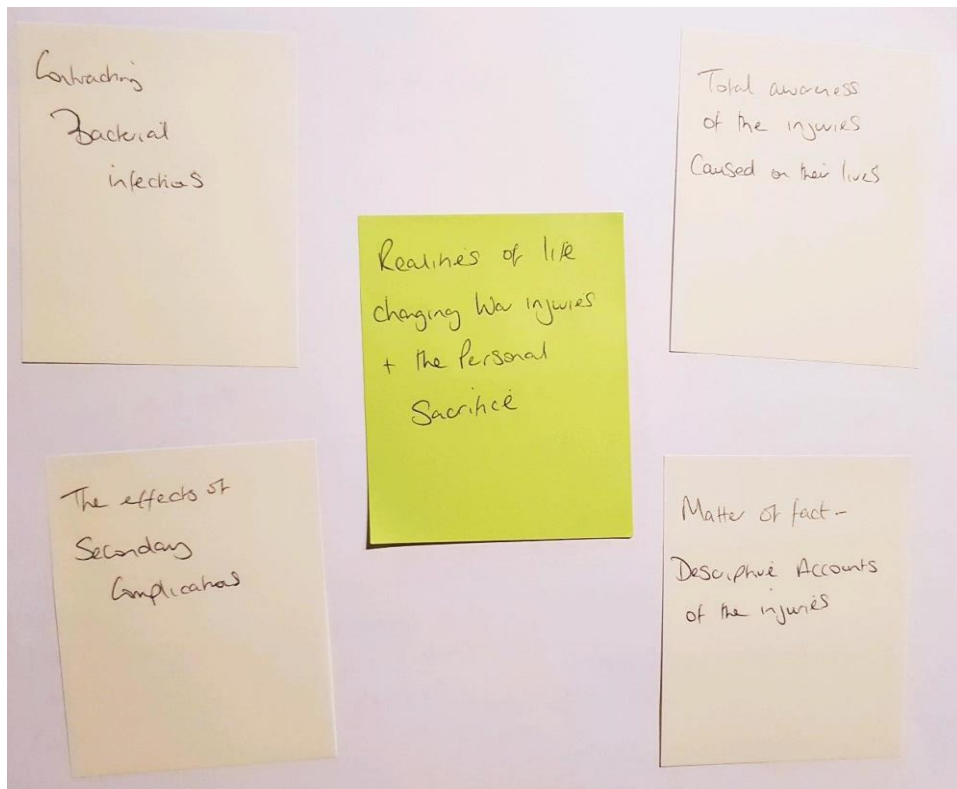 Contracting
Bacterial
infections
Total awareness
of the injuries
Caused on their lives
Realities of life
changing War injuries
+ the Personal
Sacrifice
The effects of
Secondary
Complications
Matter of fact -
Descriptive Accounts
of the injuries